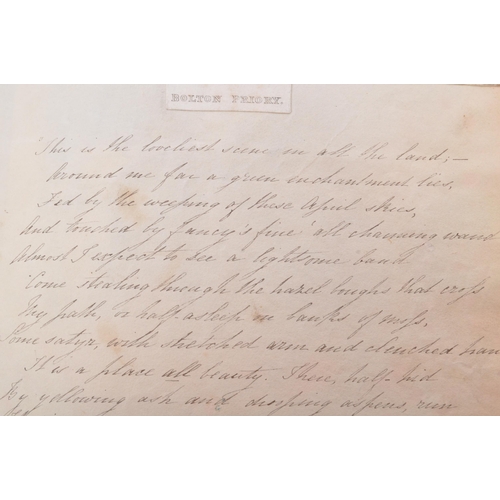 BOLTON PRIORY.
'This is the loveliest scene in all the land;—
Around me far a green enchantment lies,
Fed by the weeping of these April skies,
And touched by Fancy's fine all charming wand
Almost I expect to see a lightsome band
Come stealing through the hazel boughs that cross
My path, or half asleep in banks of moss,
Some satyr, with stretched arm and clenched han
It is a place all beauty. There, half hid
By yellowing ash and drooping aspens, run